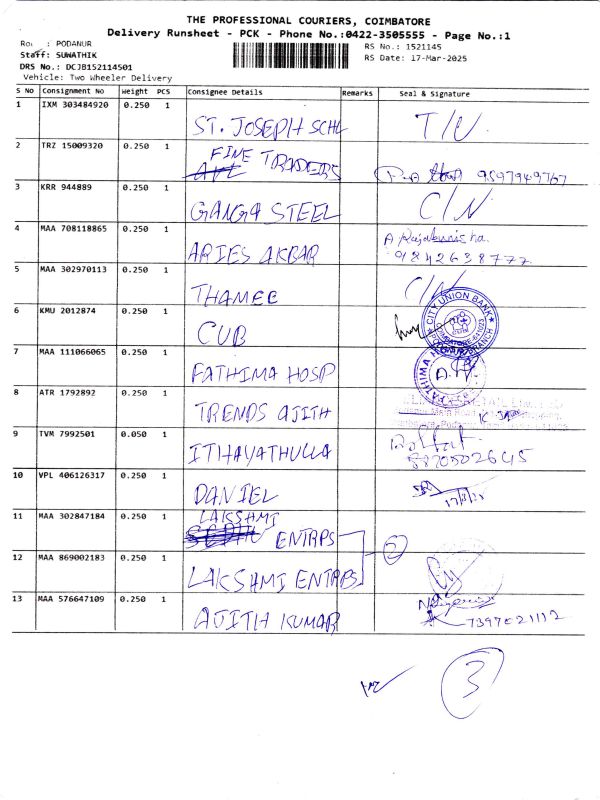 THE PROFESSIONAL COURIERS, COIMBATORE
Delivery Runsheet - PCK - Phone No.:0422-3505555 - Page No.:1
: PODANUR
RS No.: 1521145
Staff: SUWATHIK
RS Date: 17-Mar-2025
DRS No.: DCJB152114501
Vehicle: Two Wheeler Delivery
S No Consignment No Weight PCS Consignee Details Remarks Seal & Signature
1 IXM 303484920 0.250 1 ST. JOSEPH SCHL T/U.
2 TRZ 15009320 0.250 1 FINE TRADERS 9597949767
3 KRR 944889 0.250 1 GANGA STEEL C/N
4 MAA 708118865 0.250 1 ARIES AKBAR A
9842638777
5 MAA 302970113 0.250 1 THAMEE C/N
6 KMU 2012874 0.250 1 CUB CITY UNION BANK
7 MAA 111066065 0.250 1 FATHIMA HOSP
8 ATR 1792892 0.250 1 TRENDS AJITH
9 TVM 7992501 0.050 1 ITHAYATHULLA
8870502645
10 VPL 406126317 0.250 1 DANIEL 17/3/25
11 MAA 302847184 0.250 1 LAKSHMI ENTRPS
2
12 MAA 869002183 0.250 1 LAKSHMI ENTRPS
13 MAA 576647109 0.250 1 AJITH KUMAR 7397021112
3